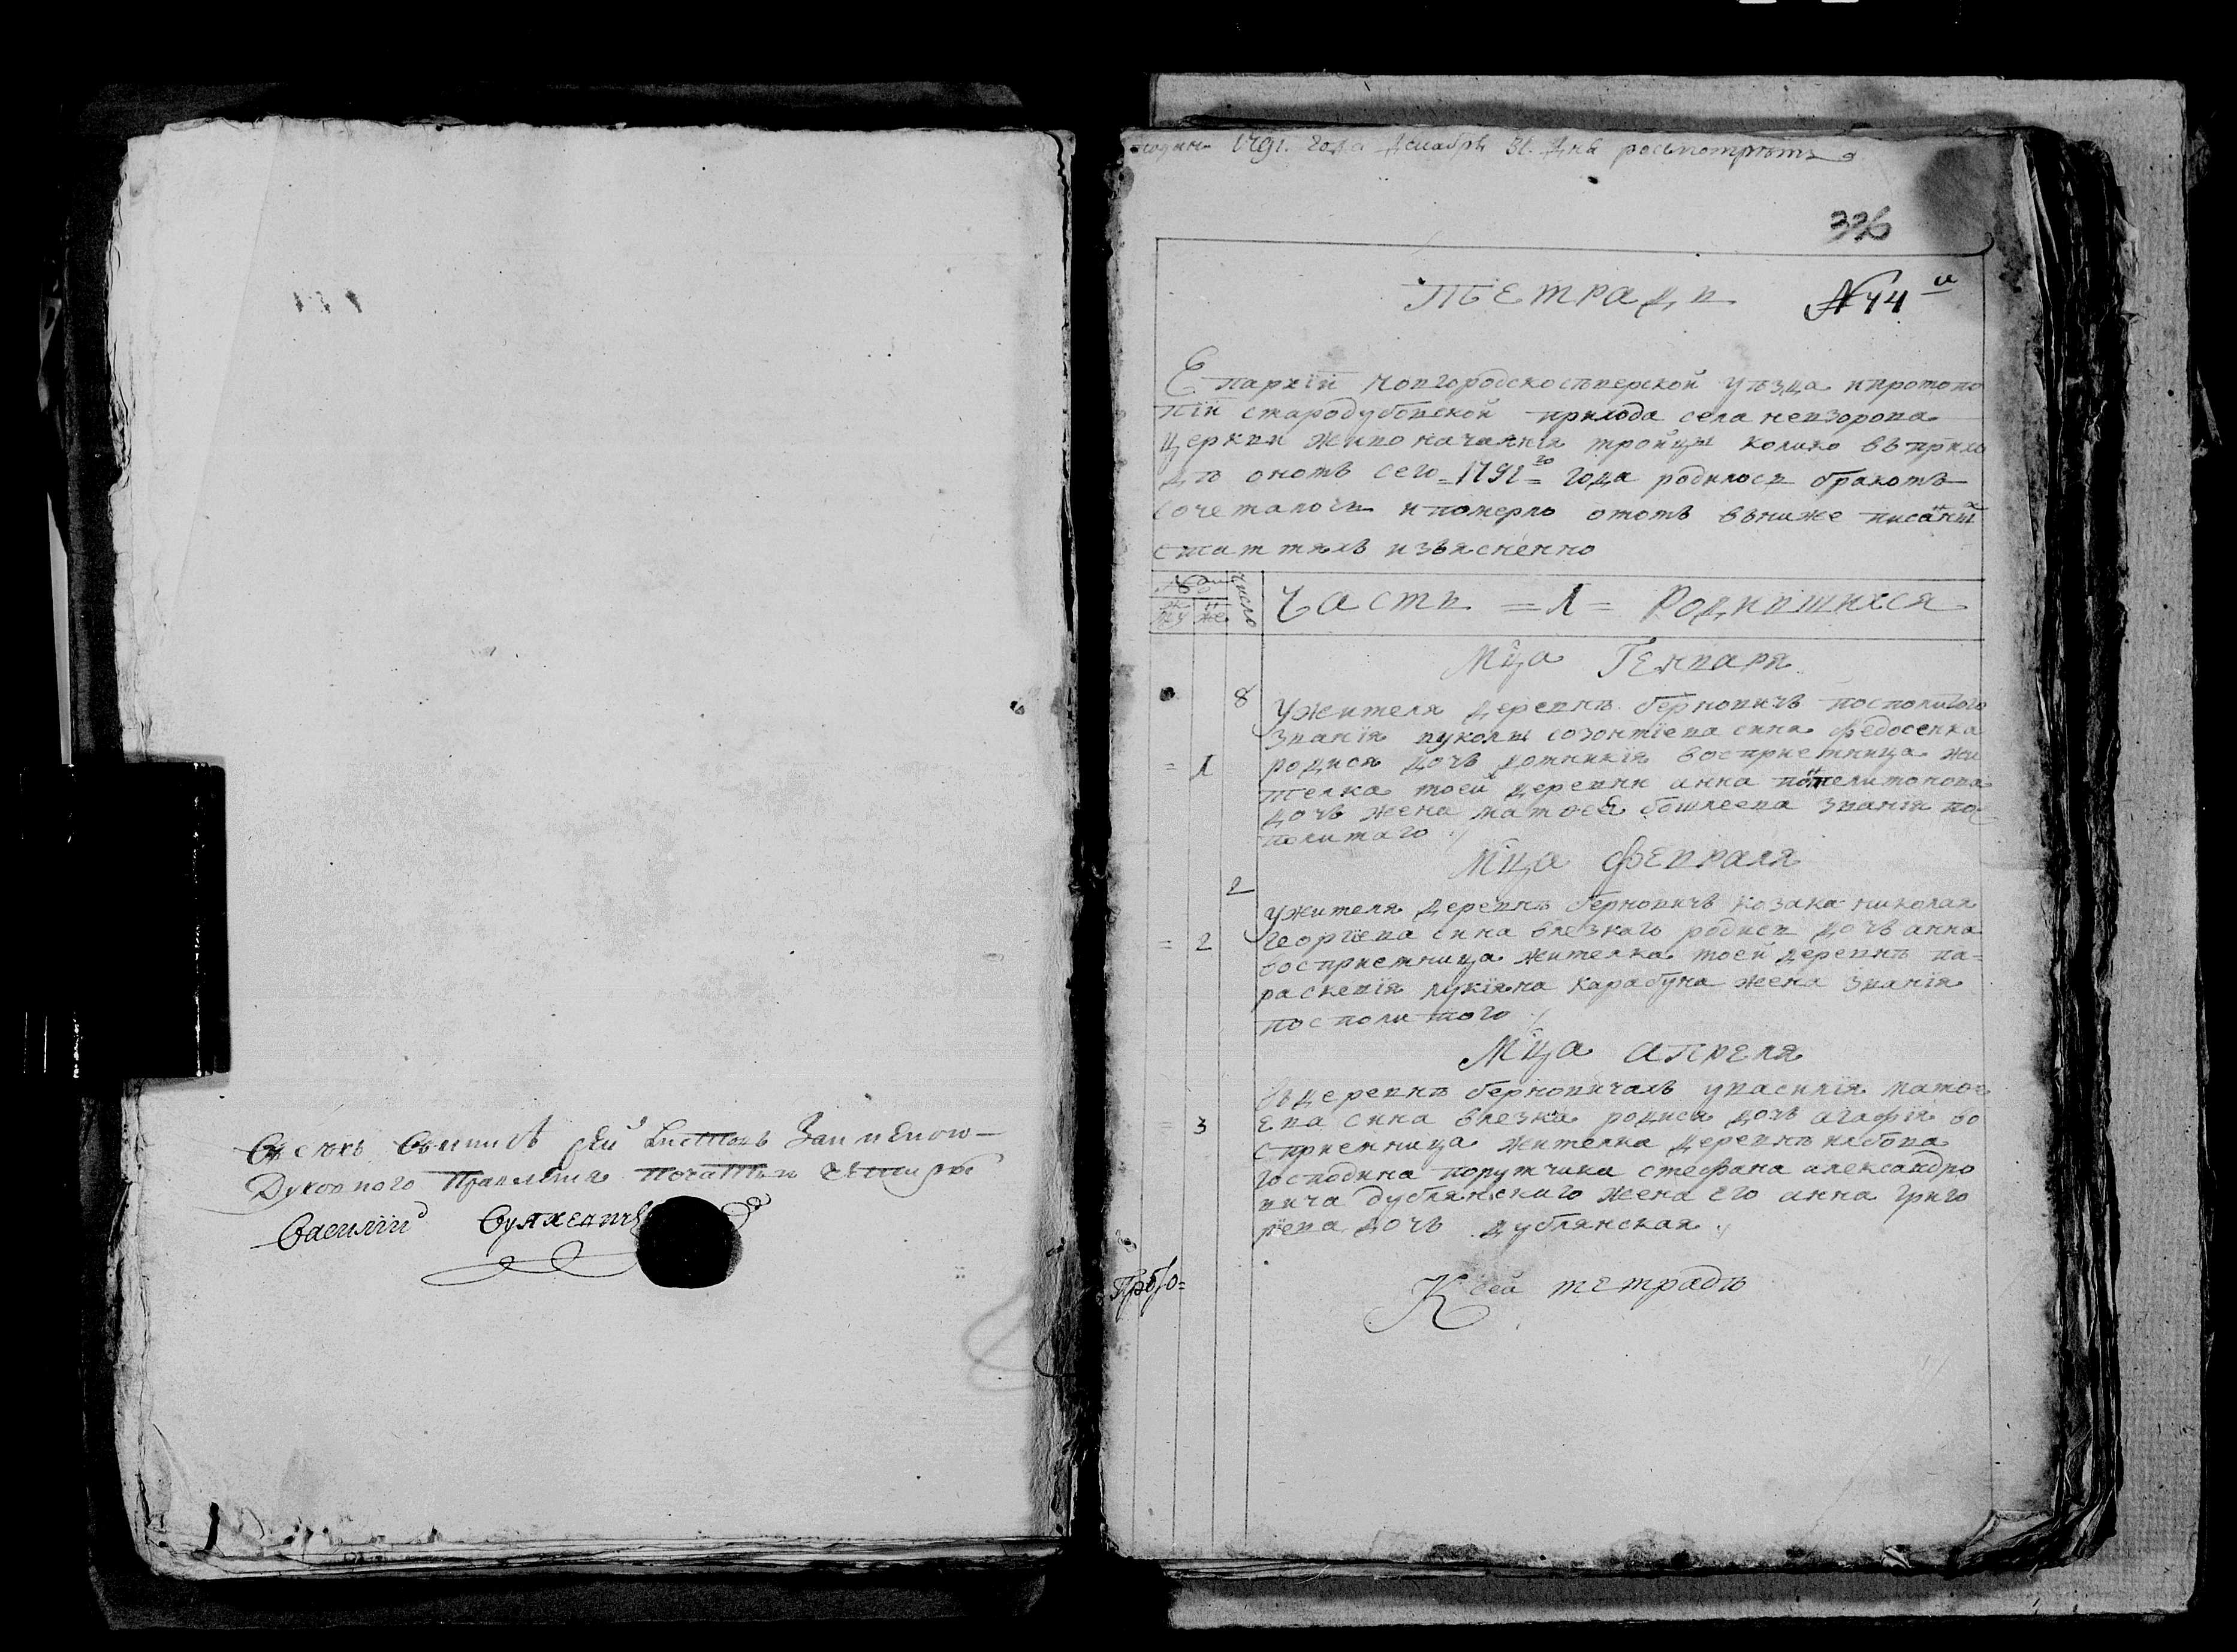 Духовного Правления
Василий
1791. года Декабря 31. дня
336
Тетрадь №44й
Епархіи новгородскосѣверской уѣзда ипротопо
піи стародубовской прихода села невзорова
церкви живоначалнія тройцы колико въ прихо
дѣ ономъ сего =1791го= года родилось бракомъ
сочеталось и померло отомъ вниже писанны
статтяхъ изъясненно
число
Часть =1= Родившихся
Мца Генваря
8 Ужителя деревнѣ берновичъ посполитого
званія вуколы созонтіева сина федосенка
= 1 родися дочь домникія восприемница жи
телка тоей деревни анна
дочь жена матоея званія пос
политаго
Мца Февраля
2
ужителя деревнѣ берновичъ козака николая
= 2 георгіева сина влезкаго родися дочь анна
восприемница жителка тоей деревнѣ па=
раскевія лукіяна карабуна жена званія
посполитого
Мца апреля
Вдеревнѣ берновичахъ увасилія матое
= 3 ева сина влезка родися дочь агафія во
сприемница жителка деревнѣ
господина порутчика стефана александро
вича дублянскаго жена его анна григо
рева дочь дублянская
К сей тетрадѣ